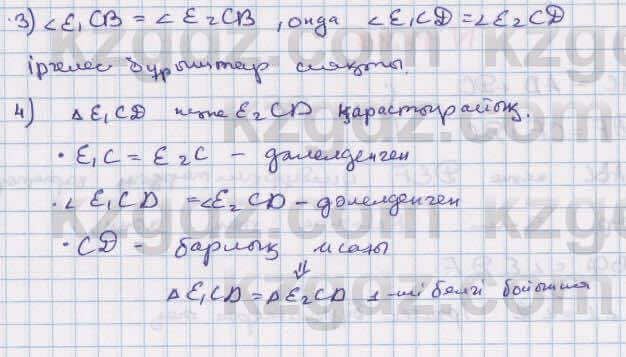 3) ∠E₁CB = ∠E₂CB, онда ∠E₁CD = ∠E₂CD
іргелес бұрыштар сияқты.
4) ΔE₁CD және E₂CD қарастырайық.
• E₁C = E₂C – дәлелденген
• ∠E₁CD = ∠E₂CD – дәлелденген
• CD – барлық
⇓
ΔE₁CD = ΔE₂CD 1-ші белгі бойынша
kzgdz.com